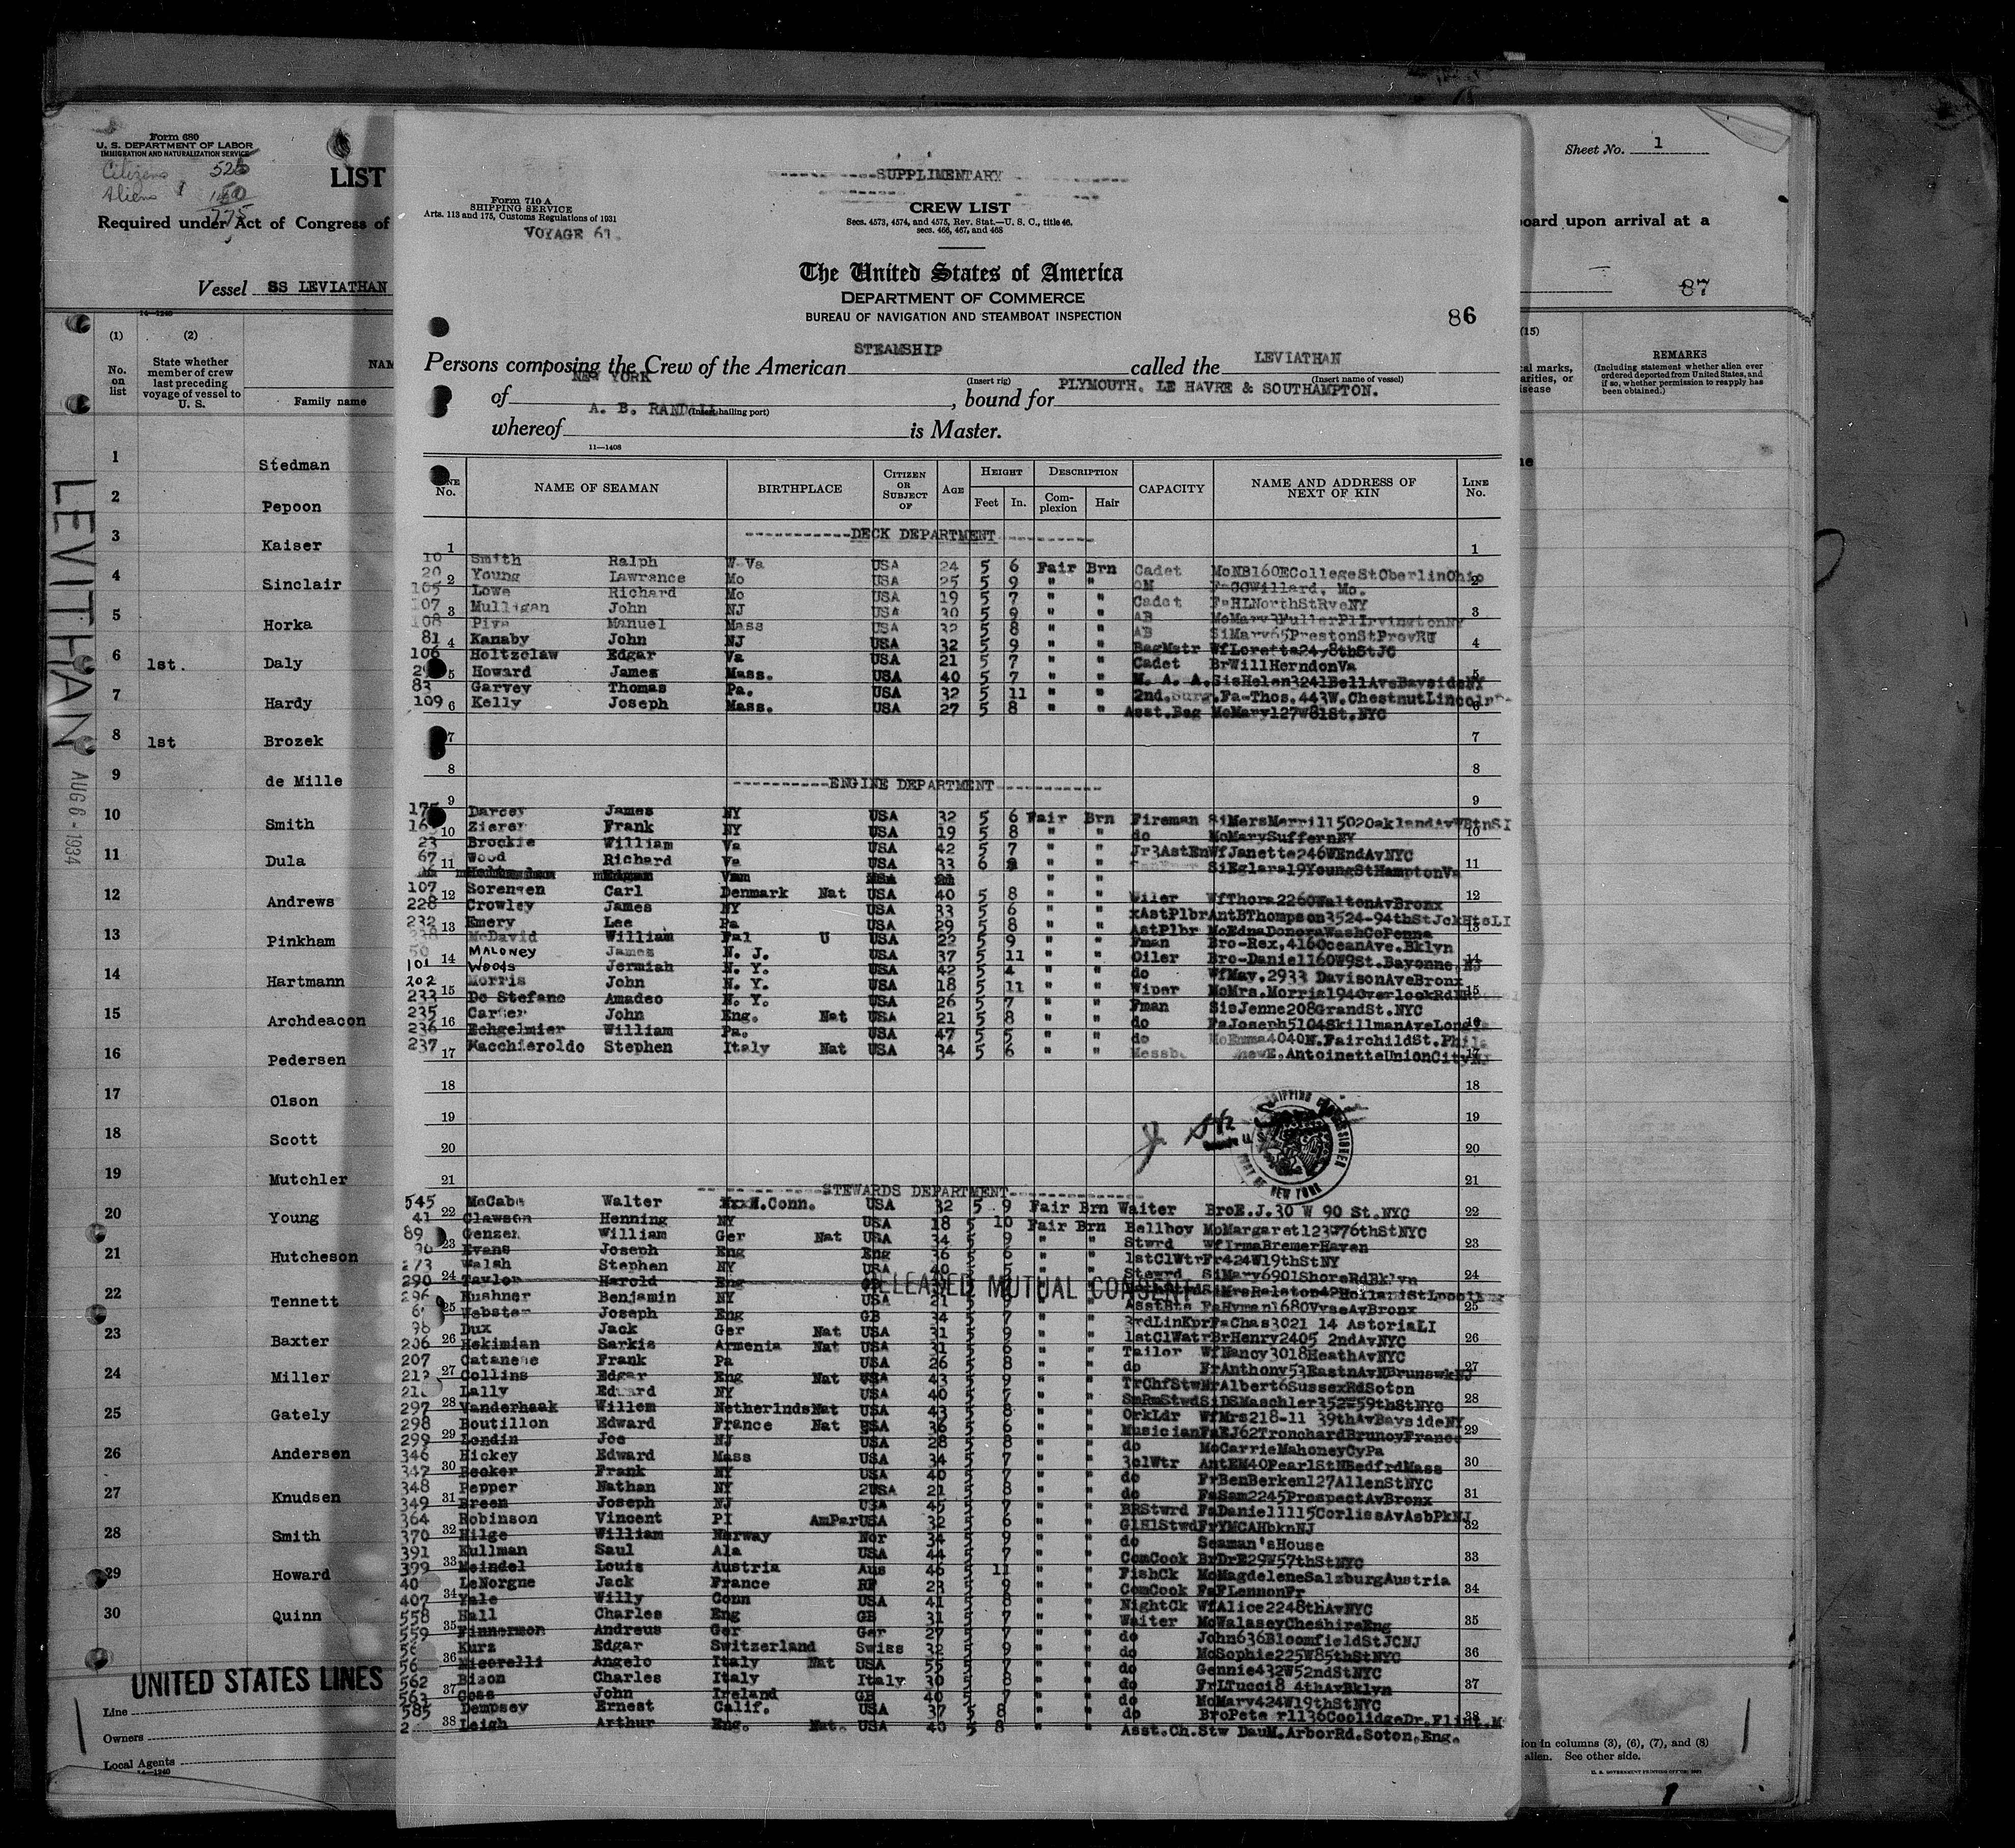 Form 680
U. S. DEPARTMENT OF LABOR
IMMIGRATION AND NATURALIZATION SERVICE
Citizens 525
Aliens
775
LIST
Required under Act of Congress of
Vessel SS LEVIATHAN
14-1240
(1) (2)
No. on list
State whether member of crew last preceding voyage of vessel to U. S.
NAM
Family name
1 Stedman
2 Pepoon
3 Kaiser
4 Sinclair
5 Horka
6 1st. Daly
7 Hardy
8 1st Brozek
9 de Mille
10 Smith
11 Dula
12 Andrews
13 Pinkham
14 Hartmann
15 Archdeacon
16 Pedersen
17 Olson
18 Scott
19 Mutchler
20 Young
21 Hutcheson
22 Tennett
23 Baxter
24 Miller
25 Gately
26 Andersen
27 Knudsen
28 Smith
29 Howard
30 Quinn
UNITED STATES LINES
Line
Owners
Local Agents
14-1240
LEVITHAN
AUG 6 - 1934
SUPPLIMENTARY
Form 710 A
SHIPPING SERVICE
Arts. 113 and 175, Customs Regulations of 1931
VOYAGE 61.
CREW LIST
Secs. 4573, 4574, and 4575, Rev. Stat.—U. S. C., title 46.
secs. 466, 467, and 468
The United States of America
DEPARTMENT OF COMMERCE
BUREAU OF NAVIGATION AND STEAMBOAT INSPECTION
86
Persons composing the Crew of the American STEAMSHIP called the LEVIATHAN
(Insert rig) (Insert name of vessel)
of NEW YORK, bound for PLYMOUTH. LE HAVRE & SOUTHAMPTON.
(Insert hailing port)
whereof A. B. RANDALL is Master.
11—1408
LINE No. NAME OF SEAMAN BIRTHPLACE CITIZEN OR SUBJECT OF AGE HEIGHT Feet In. DESCRIPTION Complexion Hair CAPACITY NAME AND ADDRESS OF NEXT OF KIN LINE No.
DECK DEPARTMENT
10 Smith Ralph W-Va USA 24 5 6 Fair Brn Cadet MoNB160ECollegeStOberlinOhio
20 Young Lawrance Mo USA 25 5 9 " " QM F-GGWillard, Mo.
105 Lowe Richard Mo USA 19 5 7 " " Cadet F-HLNorthStRyeNY
107 Mulligan John NJ USA 30 5 9 " " AB MoMary3FullerPlIrvingtonNY
108 Piva Manuel Mass USA 32 5 8 " " AB SiMary65PrestonStProvRI
81 Kanaby John NJ USA 32 5 9 " " BagMstr WfLoretta24-8thStJC
106 Holtzclaw Edgar Va USA 21 5 7 " " Cadet BrWillHerndonVa
Howard James Mass. USA 40 5 7 " " M. A. A. SisHelen3241BellAveBaysideNY
83 Garvey Thomas Pa. USA 32 5 11 " " 2nd.Surg. Fa-Thos.443W.ChestnutLincoln
109 Kelly Joseph Mass. USA 27 5 8 " " Asst.Bag MoMary127W81St.NYC
ENGINE DEPARTMENT
175 Darcey James NY USA 32 5 6 Fair Brn Fireman SiMersMerrill502OaklandAvWBtnSI
Zierer Frank NY USA 19 5 8 " " do MoMarySuffernNY
23 Brockie William Va USA 42 5 7 " " Jr3AstEn WfJanette246WEndAvNYC
67 Wood Richard Va USA 33 6 " " SiEglara19YoungStHamptonVa
107 Sorensen Carl Denmark Nat USA 40 5 8 " " Wiler WfThora2260WaltonAvBronx
228 Crowley James NY USA 33 5 6 " " xAstPlbr AntBThompson3524-94thStJckHtsLI
232 Emery Lee Pa USA 29 5 8 " " AstPlbr MoEdnaDonoraWashCoPenna
McDavid William Fal U USA 22 5 9 " " Fman Bro-Rex,416OceanAve.Bklyn
50 MALONEY James N. J. USA 37 5 11 " " Oiler Bro-Daniel160W9St.Bayonne.NJ
101 Woods Jermiah N. Y. USA 42 5 4 " " do WfMay.2933 DavisonAveBronx
202 Morris John N. Y. USA 18 5 11 " " Wiper MoMrs.Morris194OverlookRd
233 De Stefano Amadeo N. Y. USA 26 5 7 " " Fman SisJenne208GrandSt.NYC
235 Carter John Eng. Nat USA 21 5 8 " " do FaJoseph5104SkillmanAveLong
236 Echgelmier William Pa. USA 47 5 5 " " do MoEmma4040N.FairchildSt.Phila
237 Macchieroldo Stephen Italy Nat USA 34 5 6 " " Messb E.AntoinetteUnionCityNJ
SHIPPING COMMISSIONER
PORT OF NEW YORK
STEWARDS DEPARTMENT
545 McCabe Walter N.Conn. USA 32 5 9 Fair Brn Waiter BroE.J.30 W 90 St.NYC
41 Clawson Henning NY USA 18 5 10 Fair Brn Bellboy MoMargaret123W76thStNYC
89 Genzer William Ger Nat USA 34 5 9 " " Stwrd WfIrmaBremerHaven
Evans Joseph Eng Eng 36 5 6 " " 1stClWtr Fr424W19thStNY
273 Walsh Stephen NY USA 40 5 " " Stewrd SiMary6901ShoreRdBklyn
290 Taylor Harold Eng
RELEASED MUTUAL CONSENT
296 Kushner Benjamin NY USA 21 5 " " FaHyman1680VyseAvBronx
Webster Joseph Eng GB 34 5 7 " " 3rdLinKpr FaChas3021 14 AstoriaLI
98 Dux Jack Ger Nat USA 31 5 9 " " 1stClWatr BrHenry2405 2ndAvNYC
206 Hekimian Sarkis Armenia Nat USA 31 5 6 " " Tailor WfNancy3018HeathAvNYC
207 Catanese Frank Pa USA 26 5 8 " " do FrAnthony53EastnAvNBrunswkNJ
212 Collins Edgar Eng Nat USA 43 5 9 " " TrChfStw MrAlbert6SussexRdSoton
Lally Edward NY USA 40 5 7 " " SmRmStwd SiDSMaschler352W59thStNYC
297 Vanderhaak Willem Netherlnds Nat USA 43 5 8 " " OrkLdr WfMrs218-11 39thAvBaysideNY
298 Boutillon Edward France Nat USA 36 5 6 " " Musician FaEJ62TronchardBrunoyFrance
299 Londin Joe NJ USA 28 5 8 " " do MoCarrieMahoneyCyPa
346 Hickey Edward Mass USA 34 5 7 " " 3clWtr AntEM40PearlStNBedfrdMass
347 Becker Frank NY USA 40 5 7 " " do FrBenBerken127AllenStNYC
348 Pepper Nathan NY USA 21 5 8 " " do FaSam2245ProspectAvBronx
349 Breen Joseph NJ USA 45 5 7 " " BRStwrd FaDaniel1115CorlissAvAsbPkNJ
364 Robinson Vincent PI AmPar USA 32 5 6 " " GlHlStwd FrYMCAHbknNJ
370 Hilge William Norway Nor 34 5 9 " " do Seaman'sHouse
391 Kullman Saul Ala USA 44 5 7 " " ComCook BrDrE29W57thStNYC
399 Meindel Louis Austria Aus 46 5 11 " " FishCk MoMagdeleneSalzburgAustria
LeNorgne Jack France RF 23 5 9 " " ComCook FaFLennonFr
407 Yale Willy Conn USA 41 5 8 " " NightCk WfAlice2248thAvNYC
558 Hall Charles Eng GB 31 5 7 " " Waiter MoWalaseyCheshireEng
559 Finnermon Andreus Ger Ger 27 5 7 " " do John636BloomfieldStJCNJ
Kurz Edgar Switzerland Swiss 32 5 9 " " do MoSophie225W85thStNYC
Micerelli Angelo Italy Nat USA 55 5 7 " " do Gennie432W52ndStNYC
562 Bison Charles Italy Italy 30 5 8 " " do FrLTucci8 4thAvBklyn
563 Coss John Ireland GB 40 5 7 " " do MoMary424W19thStNYC
585 Dempsey Ernest Calif. USA 37 5 8 " " do BroPete r1136CoolidgeDr.Flint.M
Leigh Arthur Eng. Nat. USA 40 5 8 " " Asst.Ch.Stw DauM.ArborRd.Soton.Eng.
Sheet No. 1
board upon arrival at a
87
(15)
REMARKS
(Including statement whether alien ever ordered deported from United States, and if so, whether permission to reapply has been obtained.)
ion in columns (3), (6), (7), and (8)
alien. See other side.